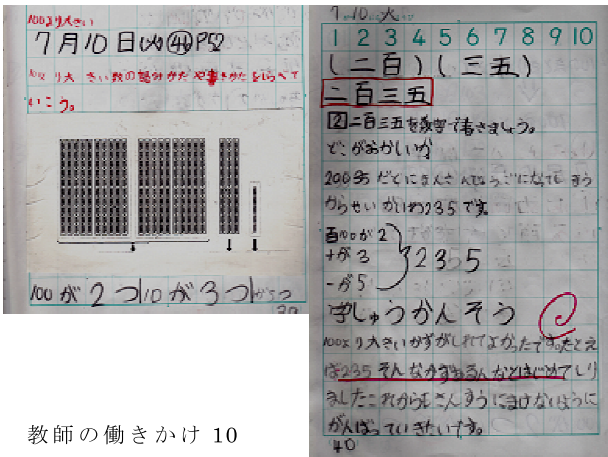 100より大きい
7月10日(火)㊹P52
100より大きい数の読みかたや書きかたをしらべて
いこう。
100が2つ10が3つ1が5つ
39
7 10 火
1 2 3 4 5 6 7 8 9 10
(二百)(三五)
二百三五
2 二百三五を数字で書きましょう。
どこがおかしいか
からせいかいわ235です。
百100が2
十が3
一が5
235
学しゅうかんそう
100より大きいかずがしれてよかったです。たとえ
ば235そんなかずあるんだとはじめてしり
ましたこれからもさんすうにまけないように
がんばっていきたいです。
40
教師の働きかけ 10